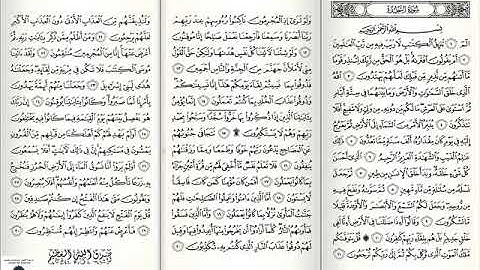 سُورَةُ السَّجْدَةِ
بِسْمِ اللَّهِ الرَّحْمَٰنِ الرَّحِيمِ
الٓمٓ ١ تَنزِيلُ الْكِتَٰبِ لَا رَيْبَ فِيهِ مِن رَّبِّ الْعَٰلَمِينَ
٢ أَمْ يَقُولُونَ افْتَرَىٰهُ بَلْ هُوَ الْحَقُّ مِن رَّبِّكَ لِتُنذِرَ قَوْمًا
مَّآ أَتَىٰهُم مِّن نَّذِيرٍ مِّن قَبْلِكَ لَعَلَّهُمْ يَهْتَدُونَ ٣ اللَّهُ الَّذِى
خَلَقَ السَّمَٰوَٰتِ وَالْأَرْضَ وَمَا بَيْنَهُمَا فِى سِتَّةِ أَيَّامٍ
ثُمَّ اسْتَوَىٰ عَلَى الْعَرْشِ مَا لَكُم مِّن دُونِهِۦ مِن وَلِىٍّ وَلَا شَفِيعٍ أَفَلَا
تَتَذَكَّرُونَ ٤ يُدَبِّرُ الْأَمْرَ مِنَ السَّمَآءِ إِلَى الْأَرْضِ ثُمَّ يَعْرُجُ
إِلَيْهِ فِى يَوْمٍ كَانَ مِقْدَارُهُۥٓ أَلْفَ سَنَةٍ مِّمَّا تَعُدُّونَ ٥ ذَٰلِكَ
عَٰلِمُ الْغَيْبِ وَالشَّهَٰدَةِ الْعَزِيزُ الرَّحِيمُ ٦ الَّذِىٓ أَحْسَنَ
كُلَّ شَىْءٍ خَلَقَهُۥ وَبَدَأَ خَلْقَ الْإِنسَٰنِ مِن طِينٍ ٧ ثُمَّ جَعَلَ
نَسْلَهُۥ مِن سُلَٰلَةٍ مِّن مَّآءٍ مَّهِينٍ ٨ ثُمَّ سَوَّىٰهُ وَنَفَخَ فِيهِ
مِن رُّوحِهِۦ وَجَعَلَ لَكُمُ السَّمْعَ وَالْأَبْصَٰرَ وَالْأَفْـِٔدَةَ قَلِيلًا
مَّا تَشْكُرُونَ ٩ وَقَالُوٓا۟ أَءِذَا ضَلَلْنَا فِى الْأَرْضِ أَءِنَّا لَفِى خَلْقٍ
جَدِيدٍ بَلْ هُم بِلِقَآءِ رَبِّهِمْ كَٰفِرُونَ ١٠ قُلْ يَتَوَفَّىٰكُم
وَلَوْ تَرَىٰٓ إِذِ الْمُجْرِمُونَ نَاكِسُوا۟ رُءُوسِهِمْ عِندَ رَبِّهِمْ
رَبَّنَآ أَبْصَرْنَا وَسَمِعْنَا فَارْجِعْنَا نَعْمَلْ صَٰلِحًا إِنَّا مُوقِنُونَ
١٢ وَلَوْ شِئْنَا لَـَٔاتَيْنَا كُلَّ نَفْسٍ هُدَىٰهَا وَلَٰكِنْ حَقَّ الْقَوْلُ
مِنِّى لَأَمْلَأَنَّ جَهَنَّمَ مِنَ الْجِنَّةِ وَالنَّاسِ أَجْمَعِينَ ١٣
فَذُوقُوا۟ بِمَا نَسِيتُمْ لِقَآءَ يَوْمِكُمْ هَٰذَآ إِنَّا نَسِينَٰكُمْ
وَذُوقُوا۟ عَذَابَ الْخُلْدِ بِمَا كُنتُمْ تَعْمَلُونَ ١٤ إِنَّمَا يُؤْمِنُ
بِـَٔايَٰتِنَا الَّذِينَ إِذَا ذُكِّرُوا۟ بِهَا خَرُّوا۟ سُجَّدًا وَسَبَّحُوا۟ بِحَمْدِ
رَبِّهِمْ وَهُمْ لَا يَسْتَكْبِرُونَ ۩ ١٥ تَتَجَافَىٰ جُنُوبُهُمْ
عَنِ الْمَضَاجِعِ يَدْعُونَ رَبَّهُمْ خَوْفًا وَطَمَعًا وَمِمَّا رَزَقْنَٰهُمْ
يُنفِقُونَ ١٦ فَلَا تَعْلَمُ نَفْسٌ مَّآ أُخْفِىَ لَهُم مِّن قُرَّةِ أَعْيُنٍ
جَزَآءًۢ بِمَا كَانُوا۟ يَعْمَلُونَ ١٧ أَفَمَن كَانَ مُؤْمِنًا كَمَن كَانَ فَاسِقًا
لَّا يَسْتَوُۥنَ ١٨ أَمَّا الَّذِينَ ءَامَنُوا۟ وَعَمِلُوا۟ الصَّٰلِحَٰتِ
فَلَهُمْ جَنَّٰتُ الْمَأْوَىٰ نُزُلًۢا بِمَا كَانُوا۟ يَعْمَلُونَ ١٩ وَأَمَّا الَّذِينَ
فَسَقُوا۟ فَمَأْوَىٰهُمُ النَّارُ كُلَّمَآ أَرَادُوٓا۟ أَن يَخْرُجُوا۟ مِنْهَآ أُعِيدُوا۟ فِيهَا وَقِيلَ
لَهُمْ ذُوقُوا۟ عَذَابَ النَّارِ الَّذِى كُنتُم بِهِۦ تُكَذِّبُونَ ٢٠
وَلَنُذِيقَنَّهُم مِّنَ الْعَذَابِ الْأَدْنَىٰ دُونَ الْعَذَابِ الْأَكْبَرِ
لَعَلَّهُمْ يَرْجِعُونَ ٢١ وَمَنْ أَظْلَمُ مِمَّن ذُكِّرَ بِـَٔايَٰتِ رَبِّهِۦ ثُمَّ
أَعْرَضَ عَنْهَآ إِنَّا مِنَ الْمُجْرِمِينَ مُنتَقِمُونَ ٢٢ وَلَقَدْ ءَاتَيْنَا
مُوسَى الْكِتَٰبَ فَلَا تَكُن فِى مِرْيَةٍ مِّن لِّقَآئِهِۦ وَجَعَلْنَٰهُ
هُدًى لِّبَنِىٓ إِسْرَٰٓءِيلَ ٢٣ وَجَعَلْنَا مِنْهُمْ أَئِمَّةً يَهْدُونَ
بِأَمْرِنَا لَمَّا صَبَرُوا۟ وَكَانُوا۟ بِـَٔايَٰتِنَا يُوقِنُونَ ٢٤ إِنَّ رَبَّكَ
هُوَ يَفْصِلُ بَيْنَهُمْ يَوْمَ الْقِيَٰمَةِ فِيمَا كَانُوا۟ فِيهِ يَخْتَلِفُونَ
٢٥ أَوَلَمْ يَهْدِ لَهُمْ كَمْ أَهْلَكْنَا مِن قَبْلِهِم مِّنَ الْقُرُونِ
يَمْشُونَ فِى مَسَٰكِنِهِمْ إِنَّ فِى ذَٰلِكَ لَـَٔايَٰتٍ أَفَلَا يَسْمَعُونَ
٢٦ أَوَلَمْ يَرَوْا۟ أَنَّا نَسُوقُ الْمَآءَ إِلَى الْأَرْضِ الْجُرُزِ فَنُخْرِجُ
بِهِۦ زَرْعًا تَأْكُلُ مِنْهُ أَنْعَٰمُهُمْ وَأَنفُسُهُمْ أَفَلَا يُبْصِرُونَ ٢٧
وَيَقُولُونَ مَتَىٰ هَٰذَا الْفَتْحُ إِن كُنتُمْ صَٰدِقِينَ ٢٨
قُلْ يَوْمَ الْفَتْحِ لَا يَنفَعُ الَّذِينَ كَفَرُوٓا۟ إِيمَٰنُهُمْ وَلَا هُمْ يُنظَرُونَ
٢٩ فَأَعْرِضْ عَنْهُمْ وَانتَظِرْ إِنَّهُم مُّنتَظِرُونَ ٣٠
صدق الله العظيم